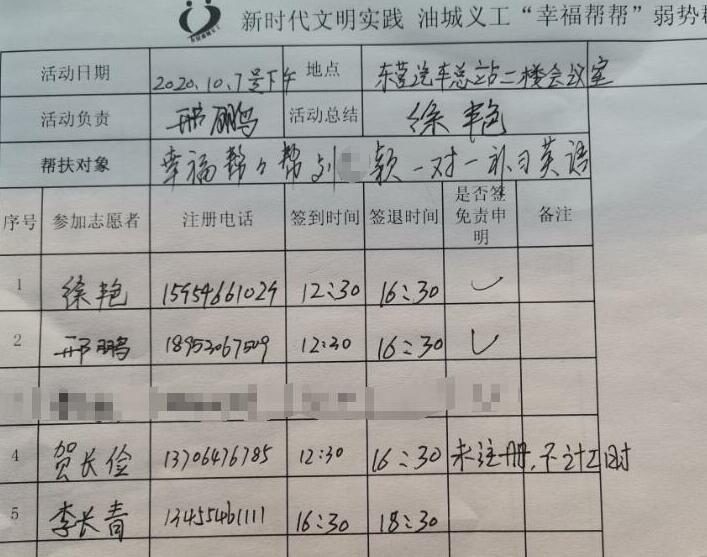 新时代文明实践 油城义工“幸福帮帮”弱势
活动日期 2020.10.7号下午 地点 东营汽车总站二楼会议室
活动负责 邢鹏 活动总结 徐艳
帮扶对象 幸福帮帮帮刘 颖一对一补习英语
序号 参加志愿者 注册电话 签到时间 签退时间 是否签免责申明 备注
1 徐艳 15954661029 12:30 16:30 ✓
2 邢鹏 18953067509 12:30 16:30 ✓
4 贺长俭 13706476785 12:30 16:30 未注册,不计工时
5 李长青 13455461111 16:30 18:30